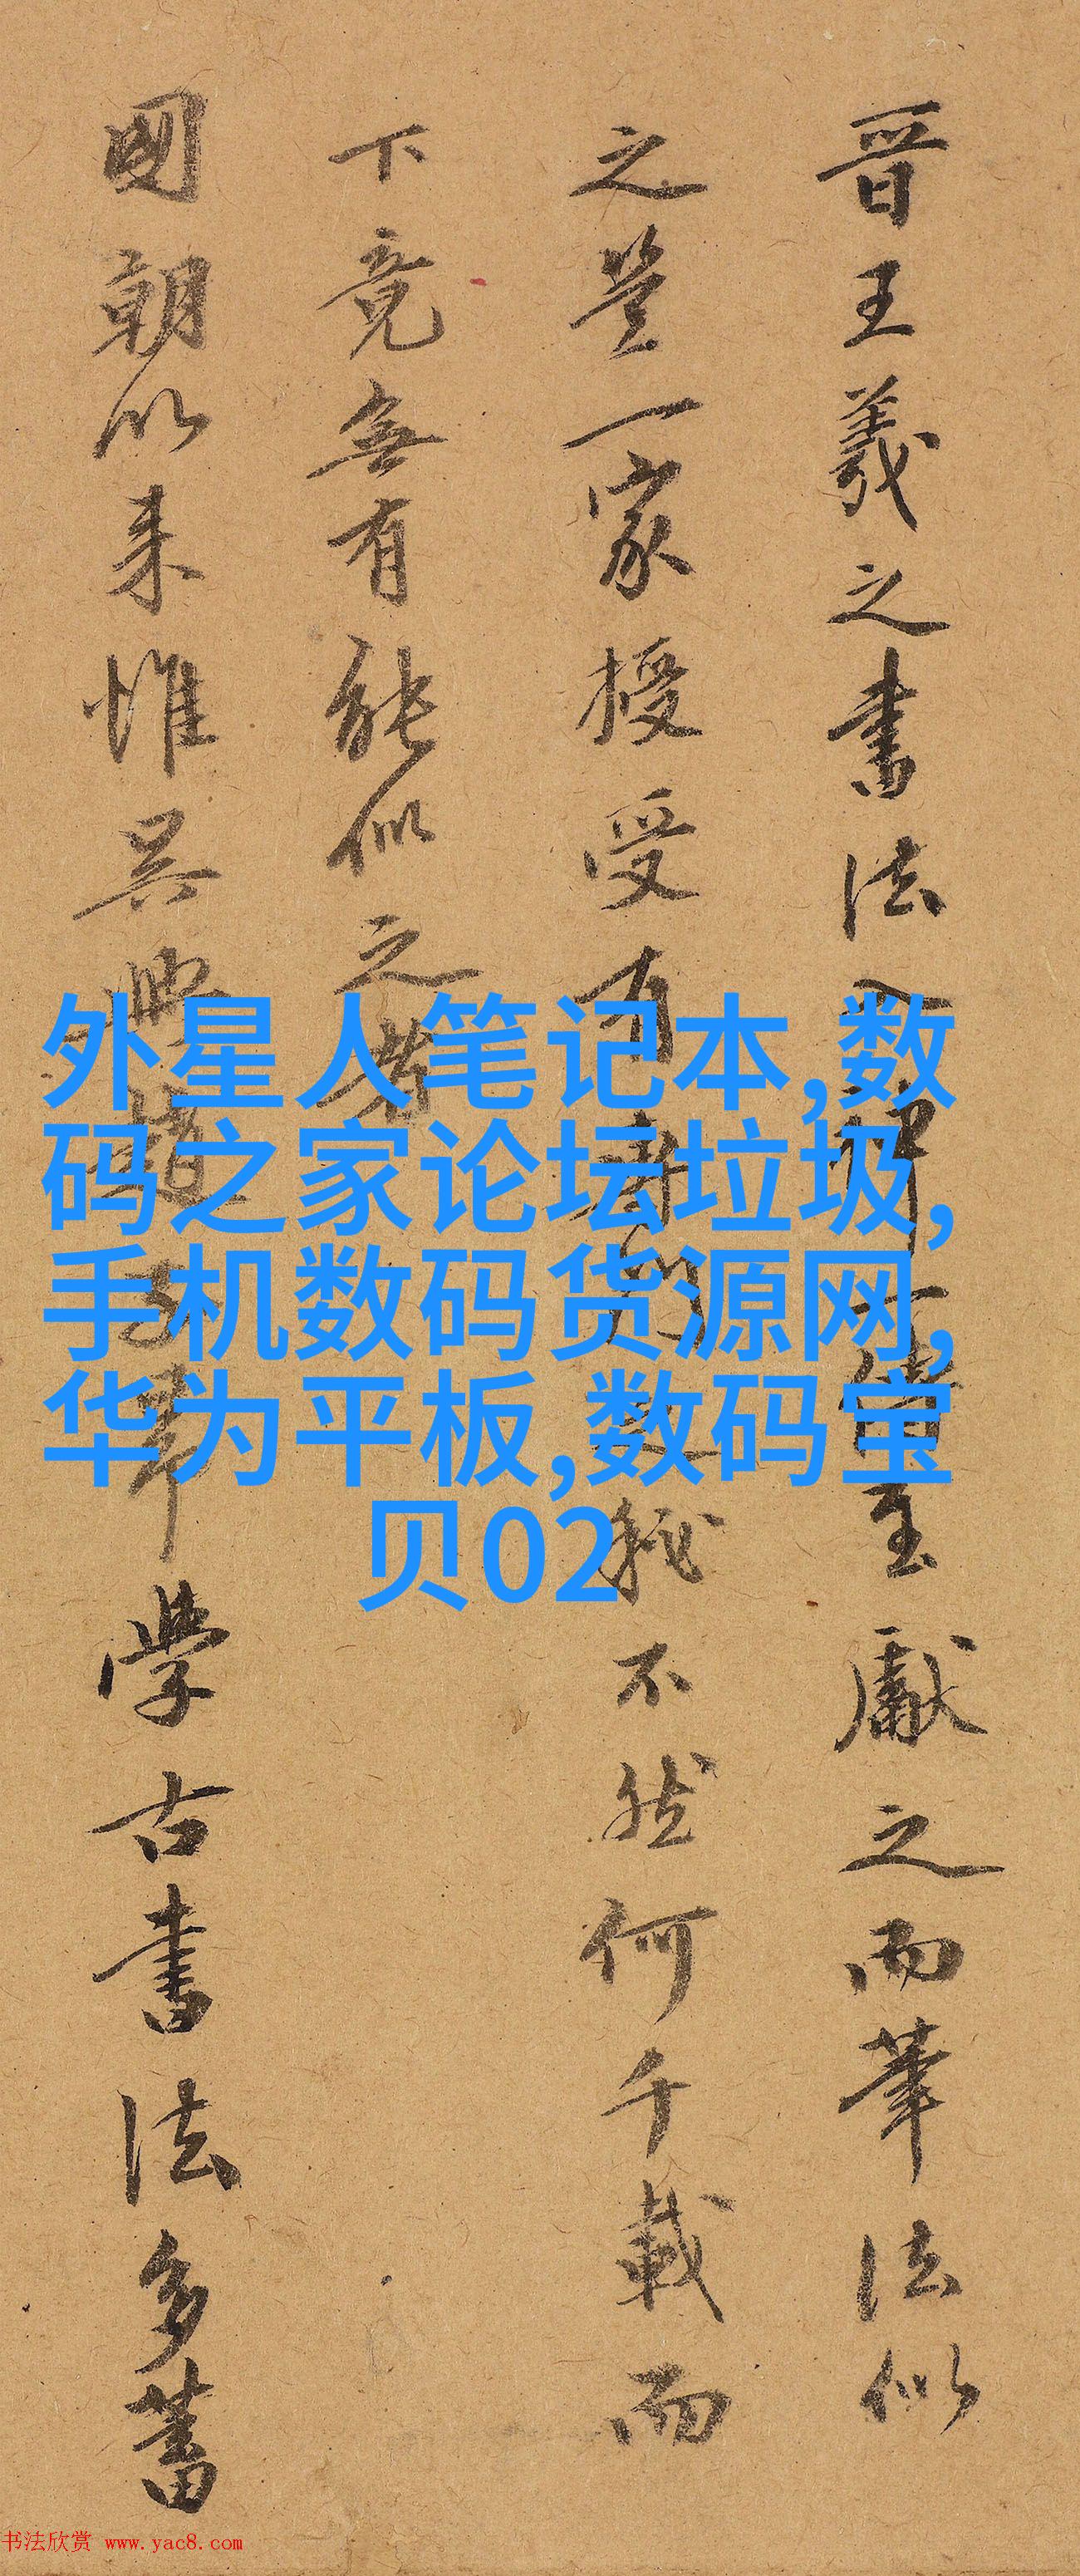 晋王羲之書法入神一傳至獻之而筆法似
之豈一家授受有專門之秘不然何千載而
下竟無有能似之者
國朝以来惟吳興學古書法多蓄
外星人笔记本,数
码之家论坛垃圾,
手机数码货源网,
华为平板,数码宝
贝02
书法欣赏 www.yac8.com